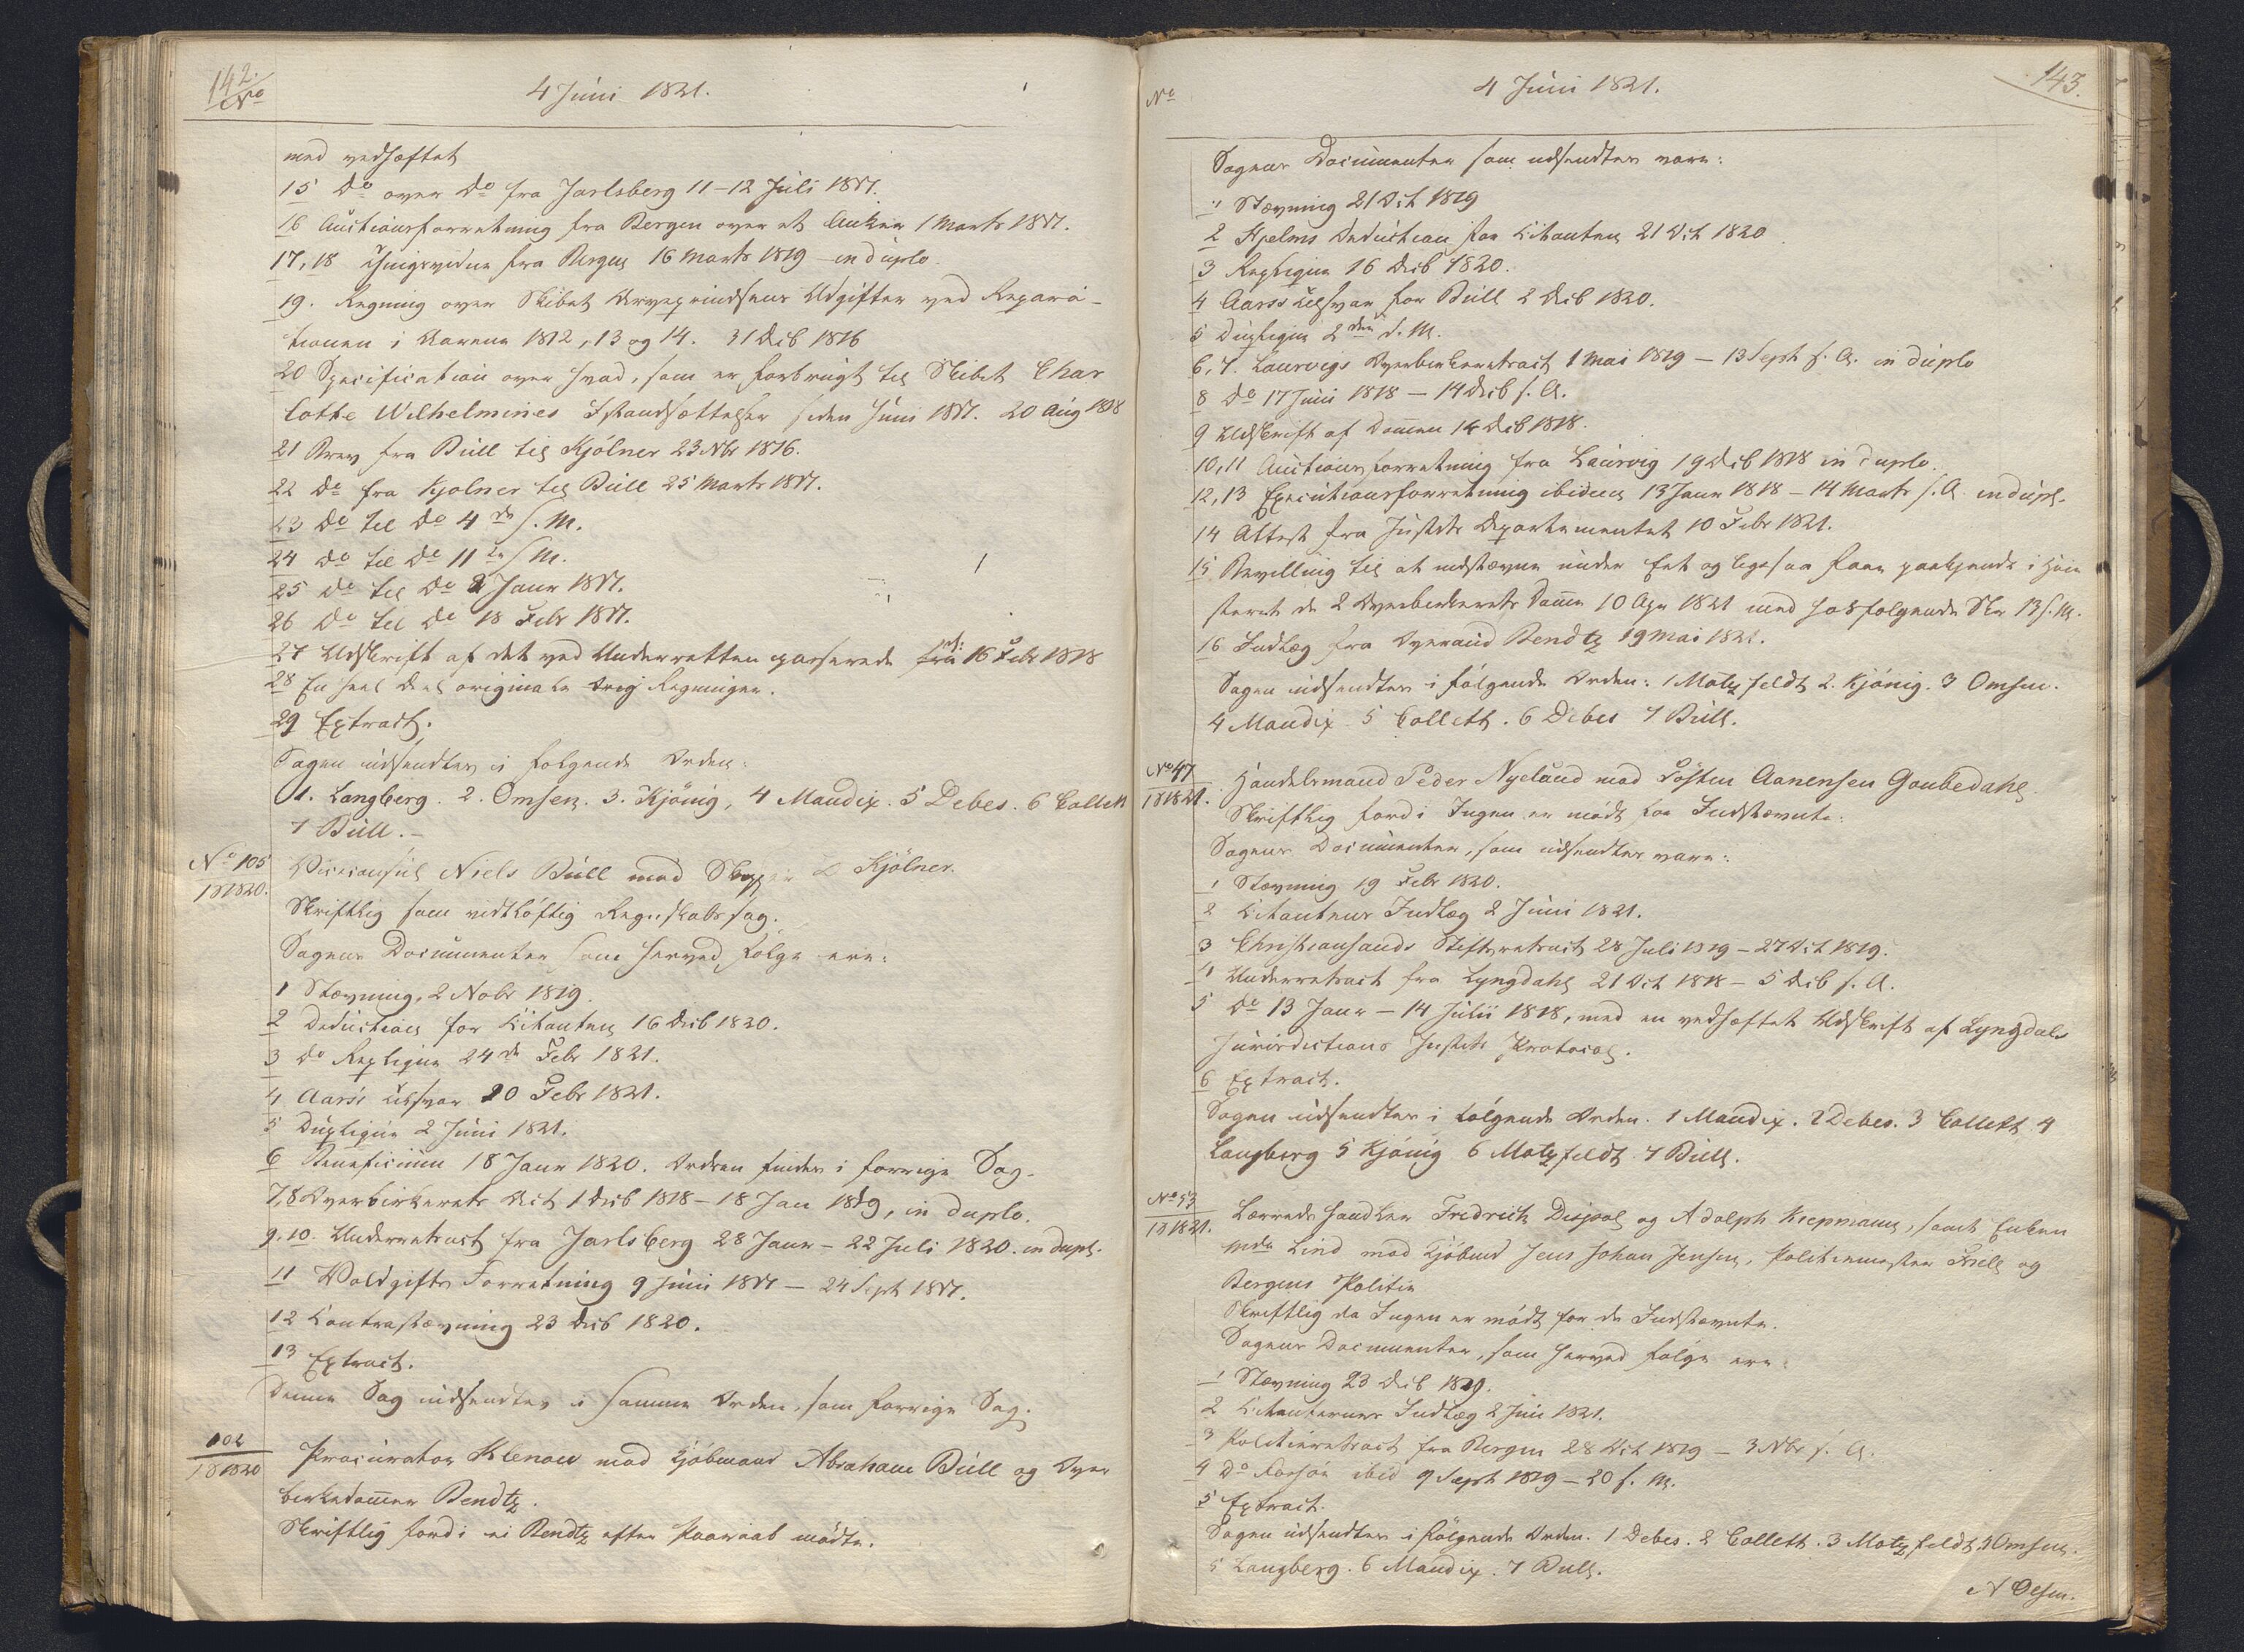 142.
No
4 Juni 1821.
med vedhæftet
15 Do over Do fra Jarlsberg 11-12 Juli 1817.
16 Auctionsforretning fra Bergen over et Anker 1 Marts 1817.
17, 18 Thingsvidne fra Bergen 16 Marts 1819 in duplo.
19. Regning over Skibet Arveprindsens Udgifter ved Repara-
tionen i Aarene 1812, 13 og 14. 31 Dcb 1816
20 Specification over hvad, som er forbrugt til Skibet Char
lotte Wilhelmines Istandsættelse siden Juni 1817. 20 Aug 1818
21 Brev fra Bull til Kjölner 23 Nbr 1816.
22 do fra Kjølner til Bull 25 Marts 1817.
23 do til do 4de s. M.
24 do til do 11te s M.
25 do til do 2 Janr 1817.
26 Do til do 18 Febr 1817.
27 Udskrift af det ved Underretten passerede fra 16 Febr 1818
28 En heel Deel originale Regninger.
29 Extract.
Sagen udsendtes i følgende Orden:
1. Langberg. 2. Omsen. 3. Kjönig, 4 Mandix. 5 Debes. 6 Collett
7 Bull.-
No 105
18 1820.
Viceconsul Niels Bull mod Skipper Kjölner.
Skriftlig som vidtløftig Regnskabssag.
Sagens Documenter som herved følge ere:
1 Stævning, 2 Nobr 1819.
2 Deduction for Citanten 16 Dcb 1820.
3 do Replique 24de Febr 1821.
4 Aars's Tilsvar 20 Febr 1821.
5 Duplique 2 Juni 1821.
6 Beneficium 18 Janr 1820. Ordren findes i forrige Sag.
7, 8 Overbirkerets Act 1 Dcb 1818 - 18 Jan 1819, in duplo.
9. 10. Underretsact fra Jarlsberg 28 Janr - 22 Juli 1820. in dupl.
11 Voldgifts Forretning 9 Juni 1817 - 24 Sept 1817.
12 Contrastævning 23 Dcb 1820.
13 Extract.
Denne Sag udsendtes i samme Orden, som forrige Sag.
102
18 1820
Procurator Klenow mod Kjöbmand Abraham Bull og Over
birkedommer Bendtz.
Skriftlig fordi ei Bendtz efter Paaraab mødte.
143.
No
4 Juni 1821.
Sagens Documenter som udsendtes vare:
1 Stævning 21 Oct 1819
2 Hjelms Deduction for Citanten 21 Oct 1820.
3 Replique 16 Dcb 1820.
4 Aars's Tilsvar for Bull 2 Dcb 1820.
5 Duplique 2den d. M.
6, 7. Laurvigs Overbirkeretsact 1 Mai 1819 - 13 Sept s. A. in duplo
8 do 17 Juni 1818 - 14 Dcb s. A.
9 Udskrift af Dommen 14 Dcb 1818.
10, 11 Auctionsforretning fra Laurvig 19 Dcb 1818 in duplo.
12, 13 Executionsforretning ibidem 13 Janr 1818 - 14 Marts s. A. in dupl.
14 Attest fra Justits Departementet 10 Febr 1821.
15 Bevilling til at indstævne under Eet og ligesaa faae paakjendt i Høie
steret de 2 Overbirkerets Domme 10 Apr 1821 med hosfølgende Skr 13 s. M.
16 Indlæg fra Overaud Bendtz 19 Mai 1821.
Sagen udsendtes i følgende Orden: 1 Motzfeldt 2. Kjönig. 3 Omsen.
4 Mandix. 5 Collett. 6 Debes 7 Bull.
No 47
18 1821.
Handelsmand Peder Nyeland mod Tosten Aanensen Goubedahl.
Skriftlig fordi Ingen er mødt for Indstævnte.
Sagens Documenter, som udsendtes vare:
1 Stævning 19 Febr 1820.
2 Citantens Indlæg 2 Juni 1821.
3 Christiansands Stiftsretsact 28 Juli 1819 - 27 Oct 1819.
4 Underretsact fra Lyngdahl 21 Oct 1818 - 5 Dcb s. A.
5 do 13 Janr - 14 Julii 1818, med en vedhæftet Udskrift af Lyngdals
Jurisdictions Justits Protocol.
6 Extract.
Sagen udsendtes i følgende Orden. 1 Mandix. 2 Debes. 3 Collett. 4
Langberg 5 Kjönig 6 Motzfeldt. 7 Bull.
No 53
18 1821.
Lærredshandler Fredrich Diepol og Adolph Kiepmann, samt Enken
Mde Lind mod Kjöbmd Jens Johan Jensen, Politiemester Friele og
Bergens Politie
Skriftlig da Ingen er mødt for de Indstævnte.
Sagens Documenter, som herved følge ere:
1 Stævning 23 Dcb 1819.
2 Citanternes Indlæg 2 Juni 1821.
3 Politieretsact fra Bergen 28 Oct 1819 - 3 Nbr s. A.
4 Do Forhör ibid 9 Sept 1819 - 20 s. M.
5 Extract.
Sagen udsendtes i følgende Orden. 1 Debes. 2 Collett. 3 Motzfeldt. 4 Omsen.
5 Langberg. 6 Mandix. 7 Bull.
N Olsen.